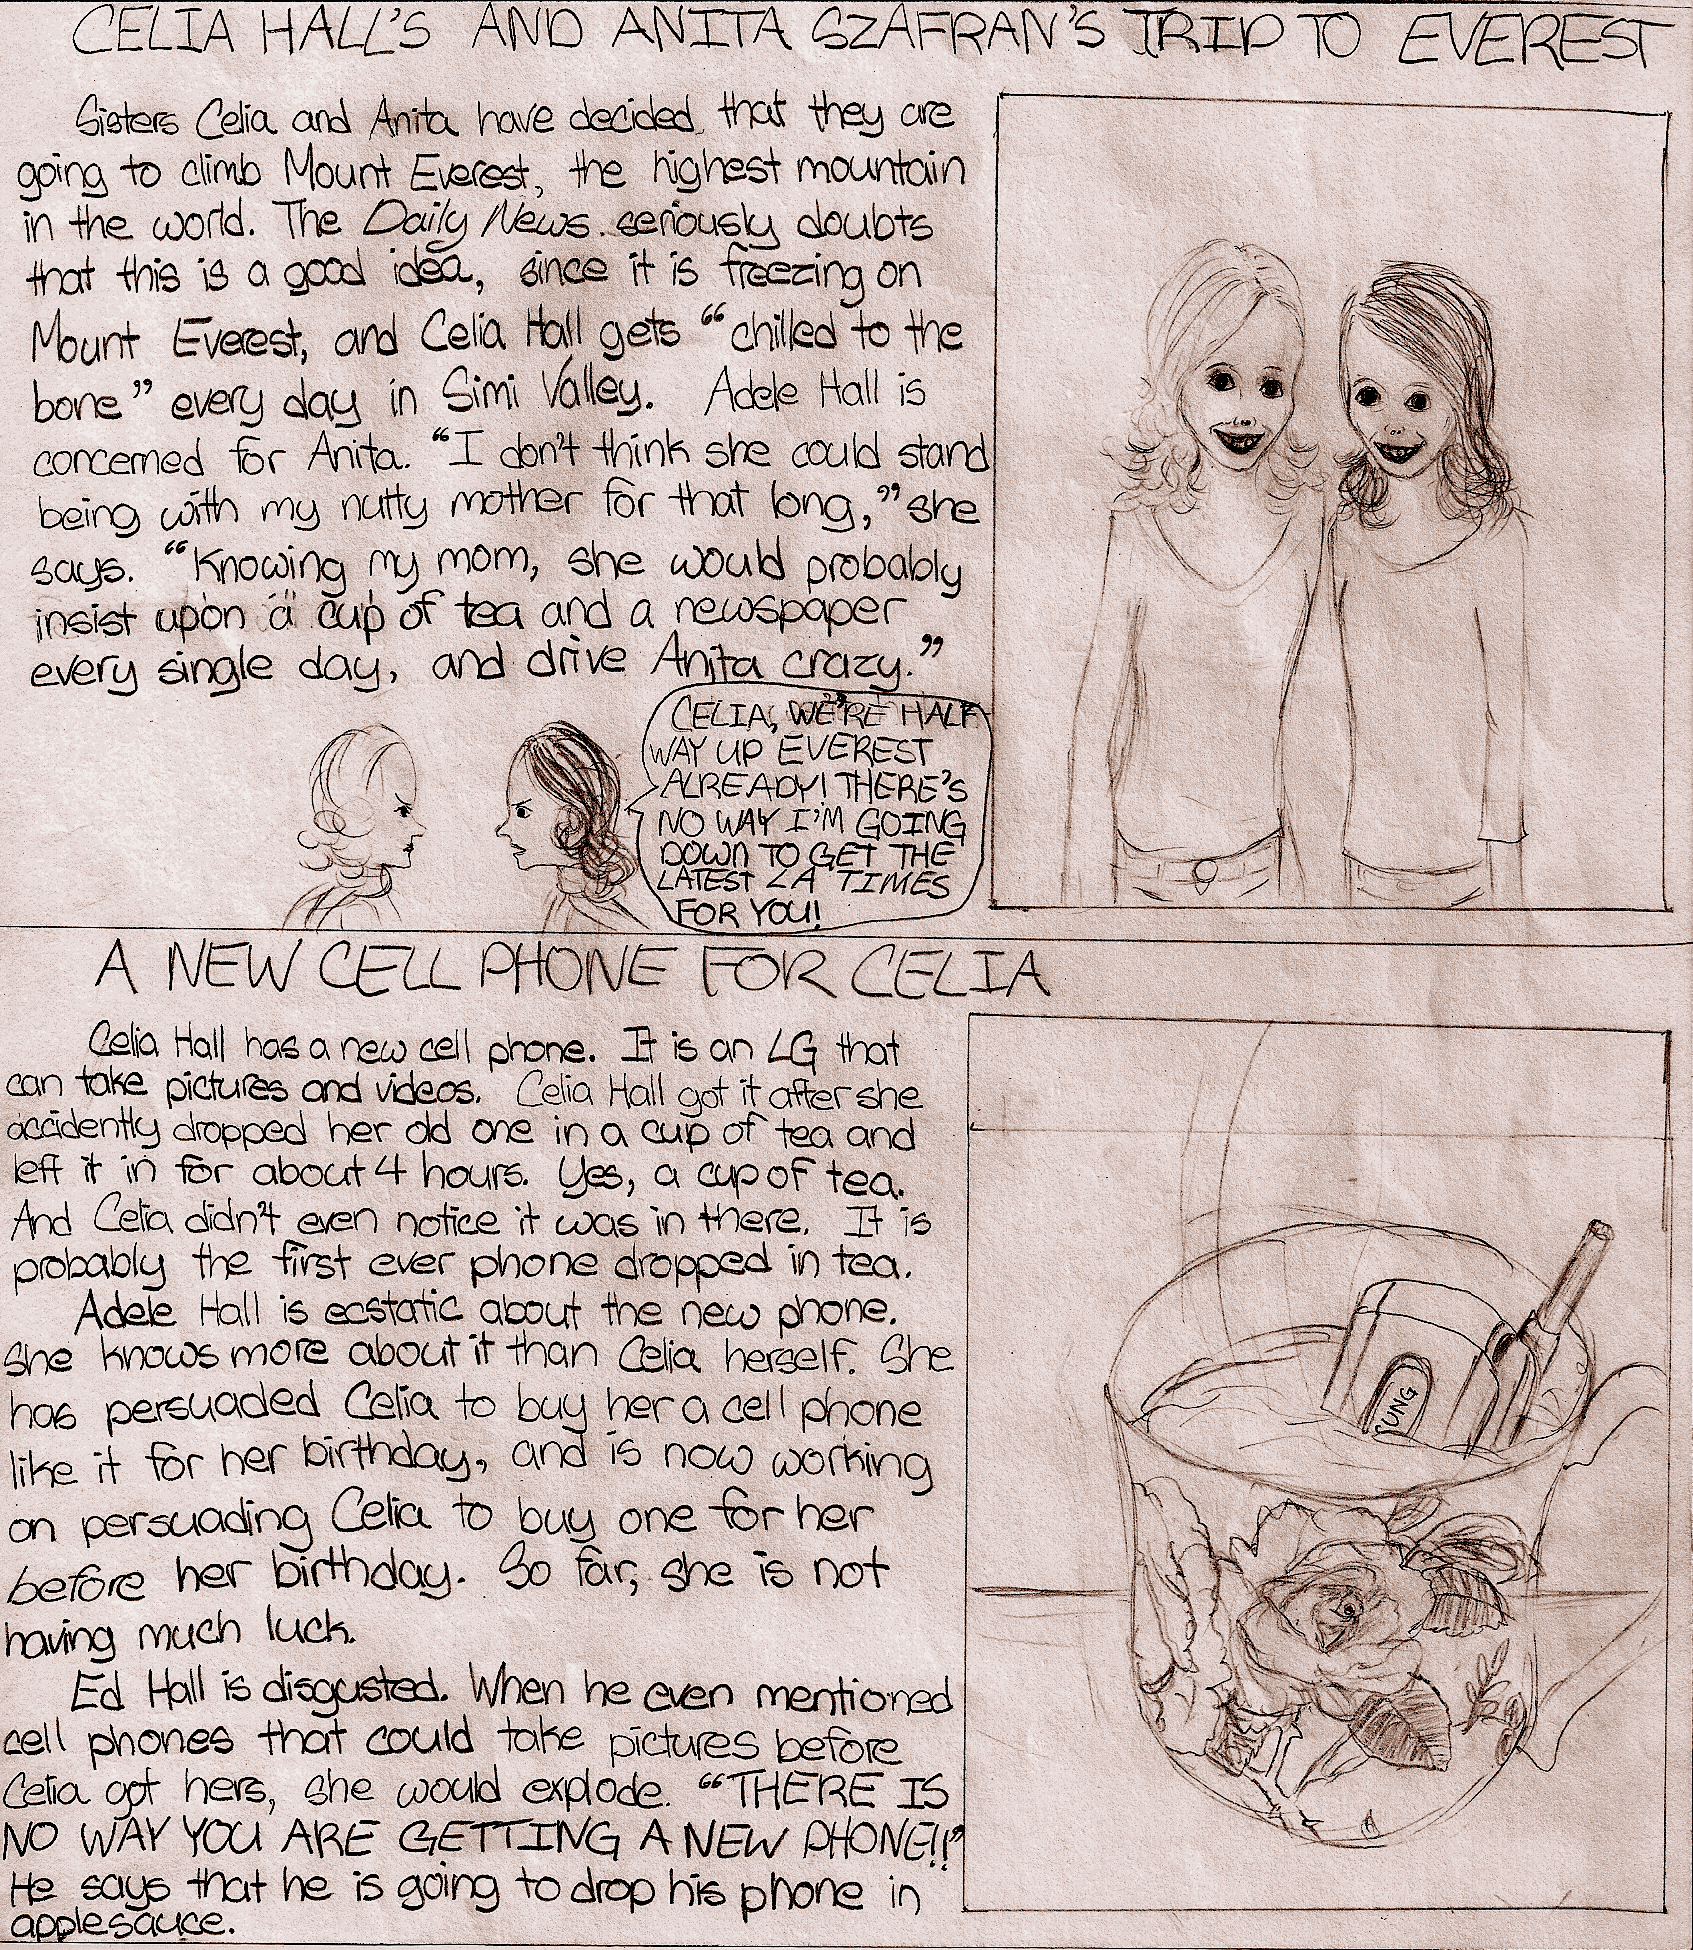 CELIA HALL'S AND ANITA SZAFRAN'S TRIP TO EVEREST
Sisters Celia and Anita have decided that they are
going to climb Mount Everest, the highest mountain
in the world. The Daily News seriously doubts
that this is a good idea, since it is freezing on
Mount Everest, and Celia Hall gets "chilled to the
bone" every day in Simi Valley. Adele Hall is
concerned for Anita. "I don't think she could stand
being with my nutty mother for that long," she
says. "Knowing my mom, she would probably
insist upon a cup of tea and a newspaper
every single day, and drive Anita crazy."
CELIA, WE'RE HALF
WAY UP EVEREST
ALREADY! THERE'S
NO WAY I'M GOING
DOWN TO GET THE
LATEST LA TIMES
FOR YOU!
A NEW CELL PHONE FOR CELIA
Celia Hall has a new cell phone. It is an LG that
can take pictures and videos. Celia Hall got it after she
accidently dropped her old one in a cup of tea and
left it in for about 4 hours. Yes, a cup of tea.
And Celia didn't even notice it was in there. It is
probably the first ever phone dropped in tea.
Adele Hall is ecstatic about the new phone.
She knows more about it than Celia herself. She
has persuaded Celia to buy her a cell phone
like it for her birthday, and is now working
on persuading Celia to buy one for her
before her birthday. So far, she is not
having much luck.
Ed Hall is disgusted. When he even mentioned
cell phones that could take pictures before
Celia got hers, she would explode. "THERE IS
NO WAY YOU ARE GETTING A NEW PHONE!!"
He says that he is going to drop his phone in
applesauce.
SUNG